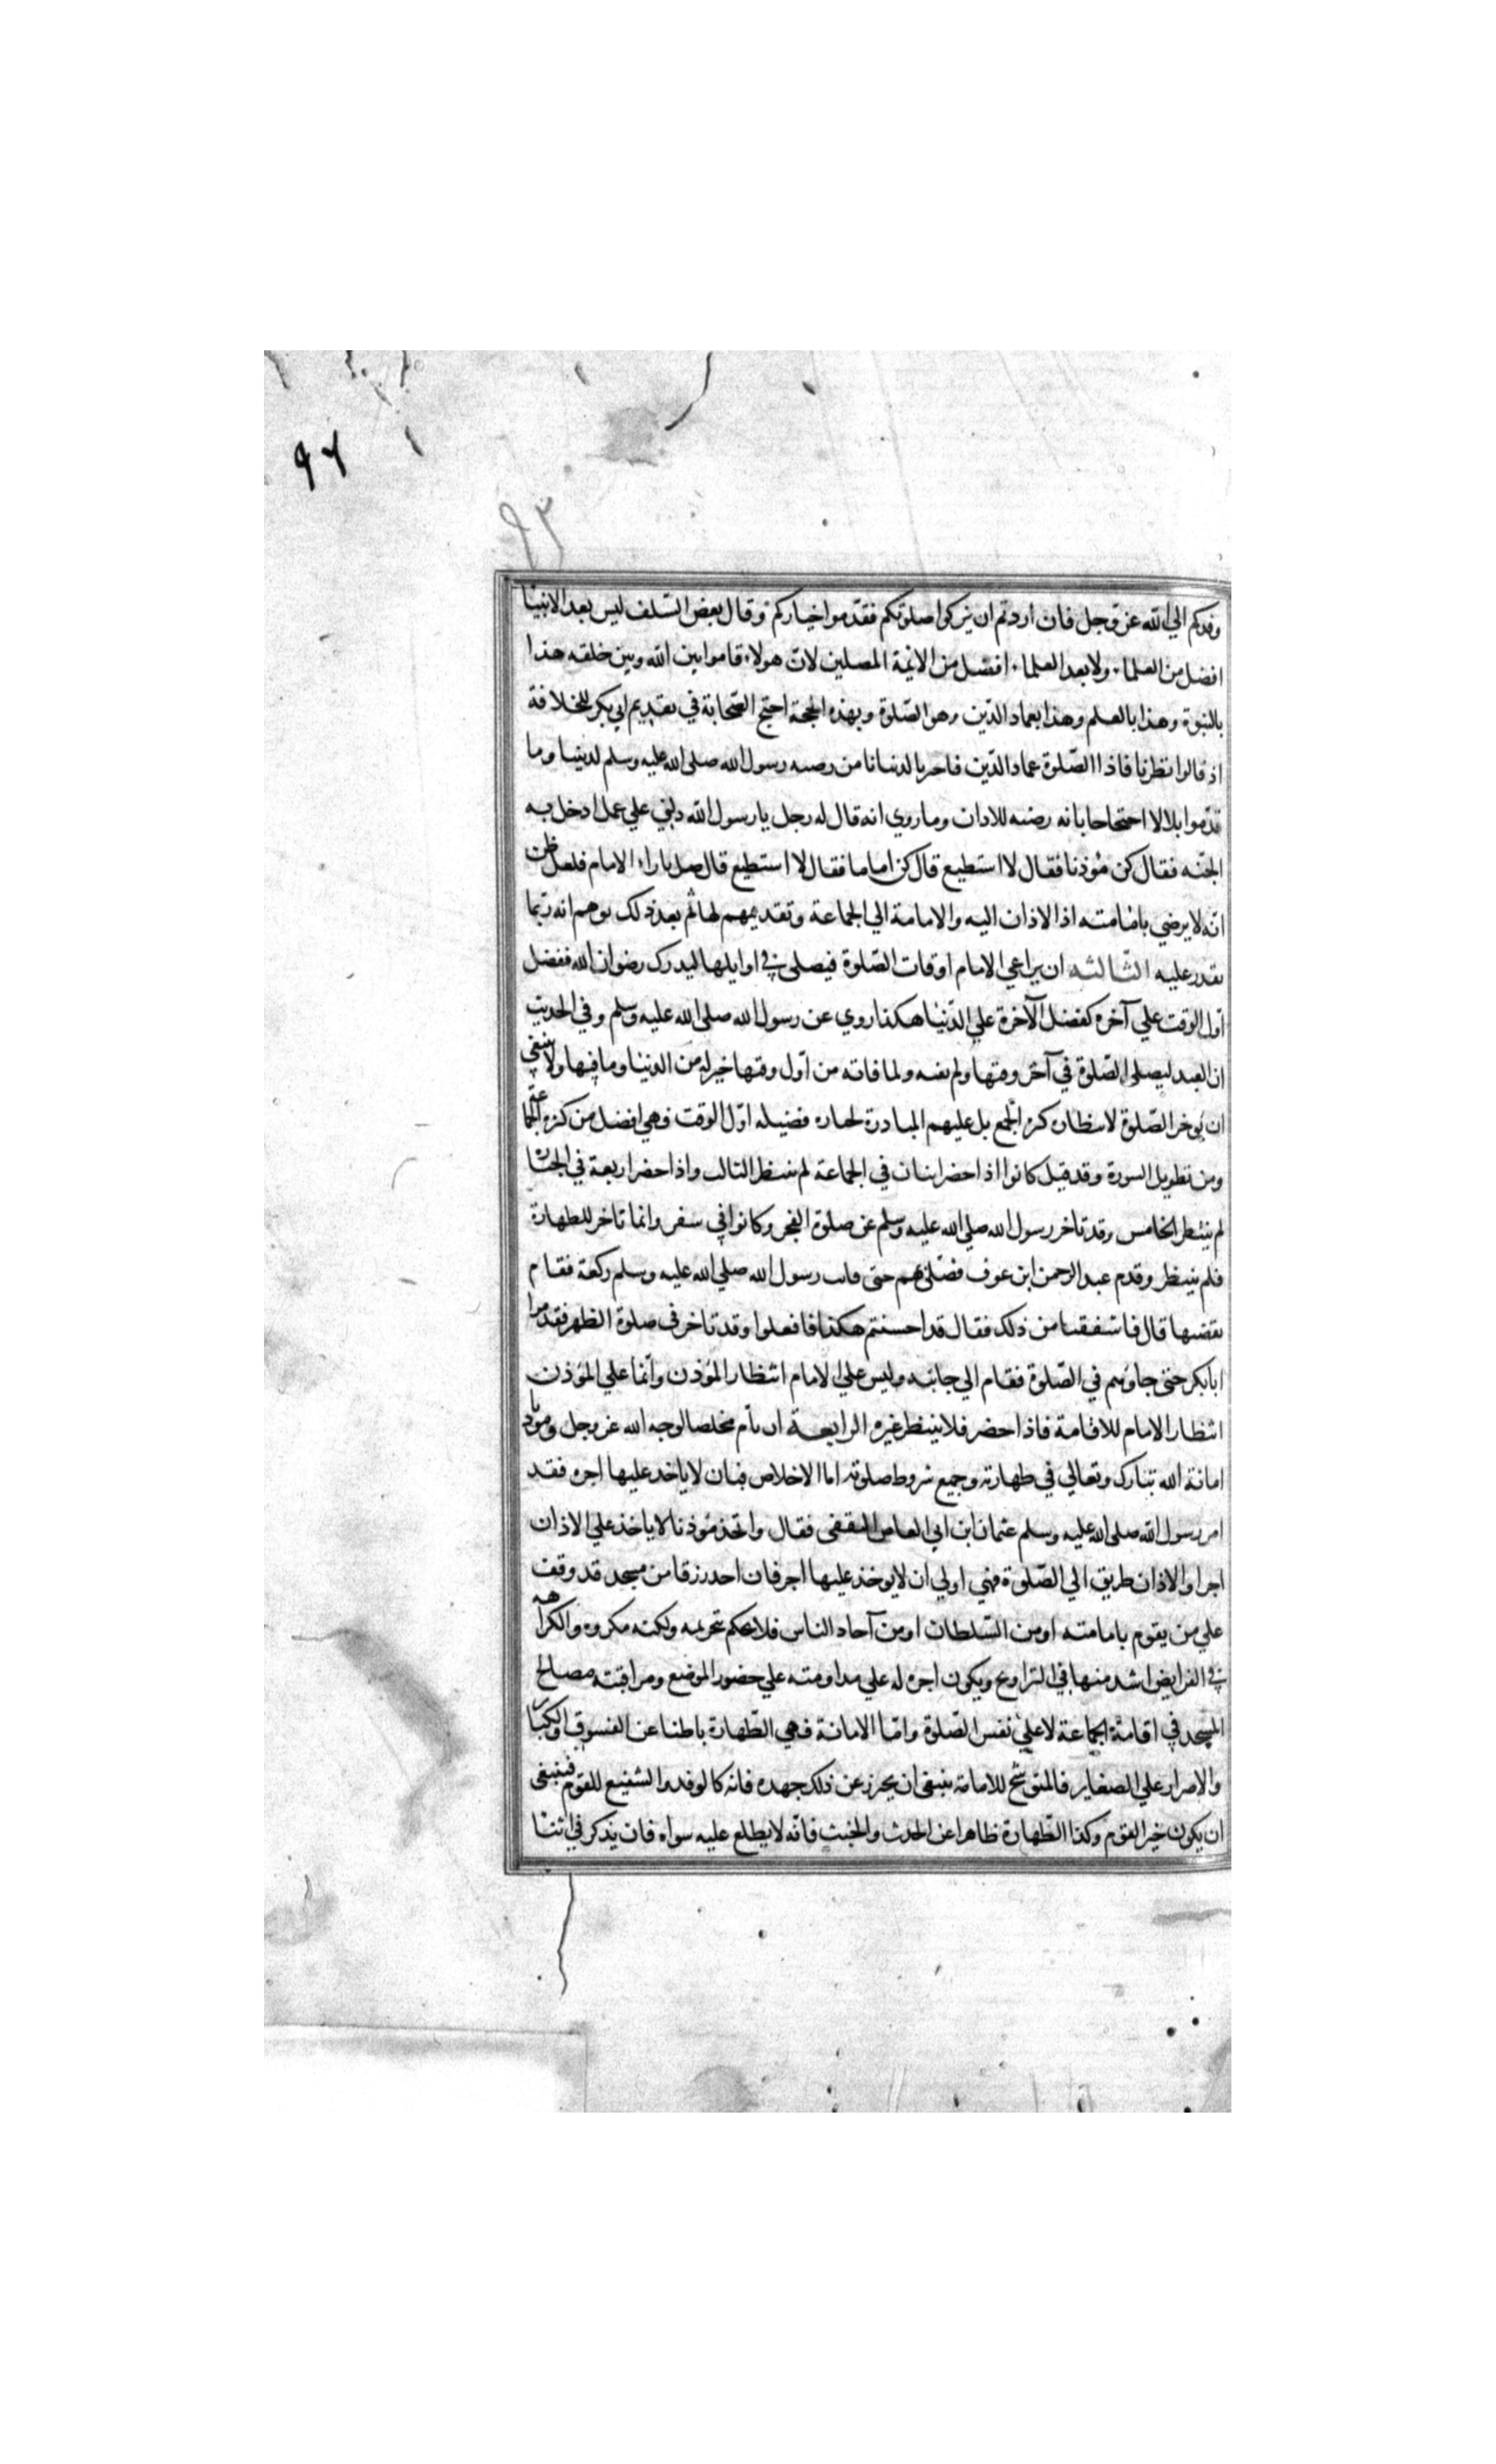 ٩٢
٩٣
وفدكم الي الله عز وجل فان اردتم ان تزكوا صلوتكم فقدموا خياركم وقال بعض السلف ليس بعد الانبيا
افضل من العلماء ولا بعد العلماء افضل من الائمة المصلين لان هولاء قاموا بين الله وبين خلقه هذا
بالنبوة وهذا بالعلم وهذا بعماد الدين وهو الصلوة وبهذه الحجة احتج الصحابة في تقديم ابي بكر للخلافة
اذ قالوا نظرنا فاذا الصلوة عماد الدين فاخترنا لدنيانا من رضيه رسول الله صلى الله عليه وسلم لديننا وما
قدموا بلالا احتجاجا بانه رضيه للاذان وما روي انه قال له رجل يا رسول الله دلني علي عمل ادخل به
الجنه فقال كن مؤذنا فقال لا استطيع قال كن اماما فقال لا استطيع قال صل بازاء الامام فلعل ظن
انه لا يرضي بامامته اذ الاذان اليه والامامة الي الجماعة وتقديمهم لها ثم بعد ذلك توهم انه ربما
يقدر عليه الثالثه ان يراعي الامام اوقات الصلوة فيصلى في اوايلها ليدرك رضوان الله ففضل
اول الوقت علي آخره كفضل الآخرة علي الدنيا هكذا روي عن رسول الله صلى الله عليه وسلم وفي الحديث
ان العبد ليصلى الصلوة في آخر وقتها ولم تفته ولما فاته من اول وقتها خير له من الدنيا وما فيها ولا ينبغي
ان يوخر الصلوة لانتظار كثرة الجمع بل عليهم المبادرة لحيازه فضيله اول الوقت فهي افضل من كثرة الجماعة
ومن تطويل السورة وقد قيل كانوا اذا حضر اثنان في الجماعة لم ينتظر الثالث واذا حضر اربعة في الجنازه
لم ينتظر الخامس وقد تاخر رسول الله صلي الله عليه وسلم عن صلوة الفجر وكانوا في سفر وانما تاخر للطهارة
فلم ينتظر وقدم عبد الرحمن ابن عوف فصلى بهم حتى فاتت رسول الله صلي الله عليه وسلم ركعة فقام
يقضيها قال فاشفقنا من ذلك فقال قد احسنتم هكذا فافعلوا وقد تاخر في صلوة الظهر فقدموا
ابا بكر حتى جاوهم في الصلوة فقام الي جانبه وليس علي الامام انتظار المؤذن وانما علي المؤذن
انتظار الامام للاقامة فاذا حضر فلا ينتظر غيره الرابعة ان يأم مخلصا لوجه الله عز وجل وموديا
امانة الله تبارك وتعالي في طهارته وجميع شروط صلوته اما الاخلاص فبان لا ياخذ عليها اجره فقد
امر رسول الله صلى الله عليه وسلم عثمان ابن ابي العاص الثقفى فقال واتخذ مؤذنا لا ياخذ علي الاذان
اجرا والاذان طريق الي الصلوة فهي اولي ان لا يوخذ عليها اجر فان اخذ رزقا من مسجد قد وقف
علي من يقوم بامامته او من السلطان او من آحاد الناس فلا يحكم بتحريمه ولكنه مكروه والكراهه
في الفرايض اشد منها في التراويح ويكون اجره له علي مداومته علي حضور الموضع ومراقبته مصالح
المسجد في اقامة الجماعة لا علي نفس الصلوة واما الامانة فهي الطهارة باطنا عن الفسوق والكباير
والاصرار علي الصغاير فالمتوشح للامامة ينبغى ان يحترز عن ذلك جهده فانه كالوفد والشفيع للقوم فينبغى
ان يكون خير القوم وكذا الطهارة ظاهرا عن الحدث والخبث فانه لا يطلع عليه سواه فان يذكر في اثنا